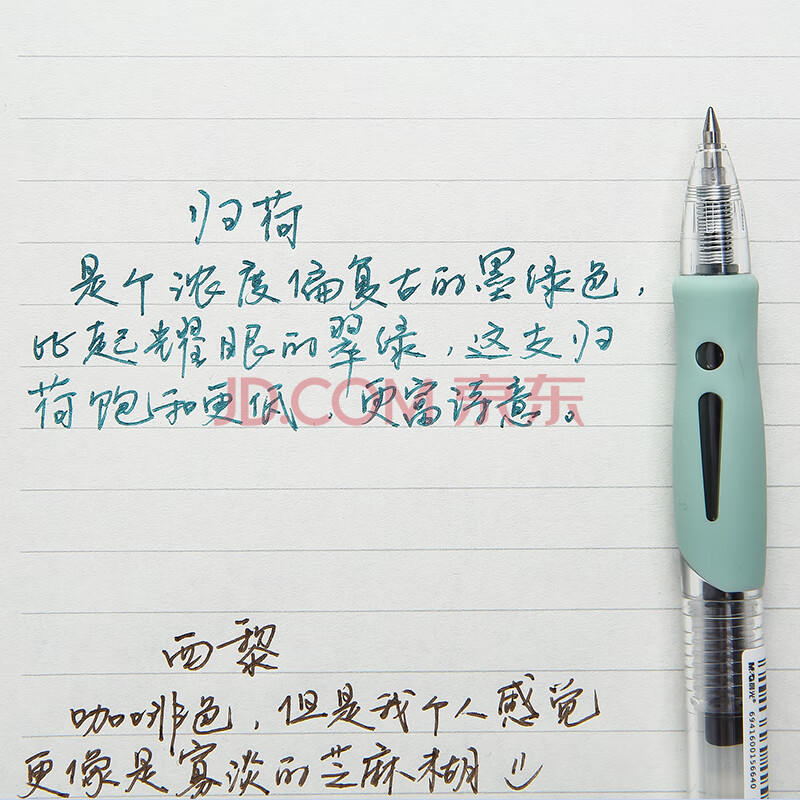 归荷
是个浓度偏复古的墨绿色，
比起耀眼的翠绿，这支归
荷饱和更低，更富诗意。
JD.COM 京东
西黎
咖啡色，但是我个人感觉
更像是寡淡的芝麻糊
M&G晨光
6941600156640